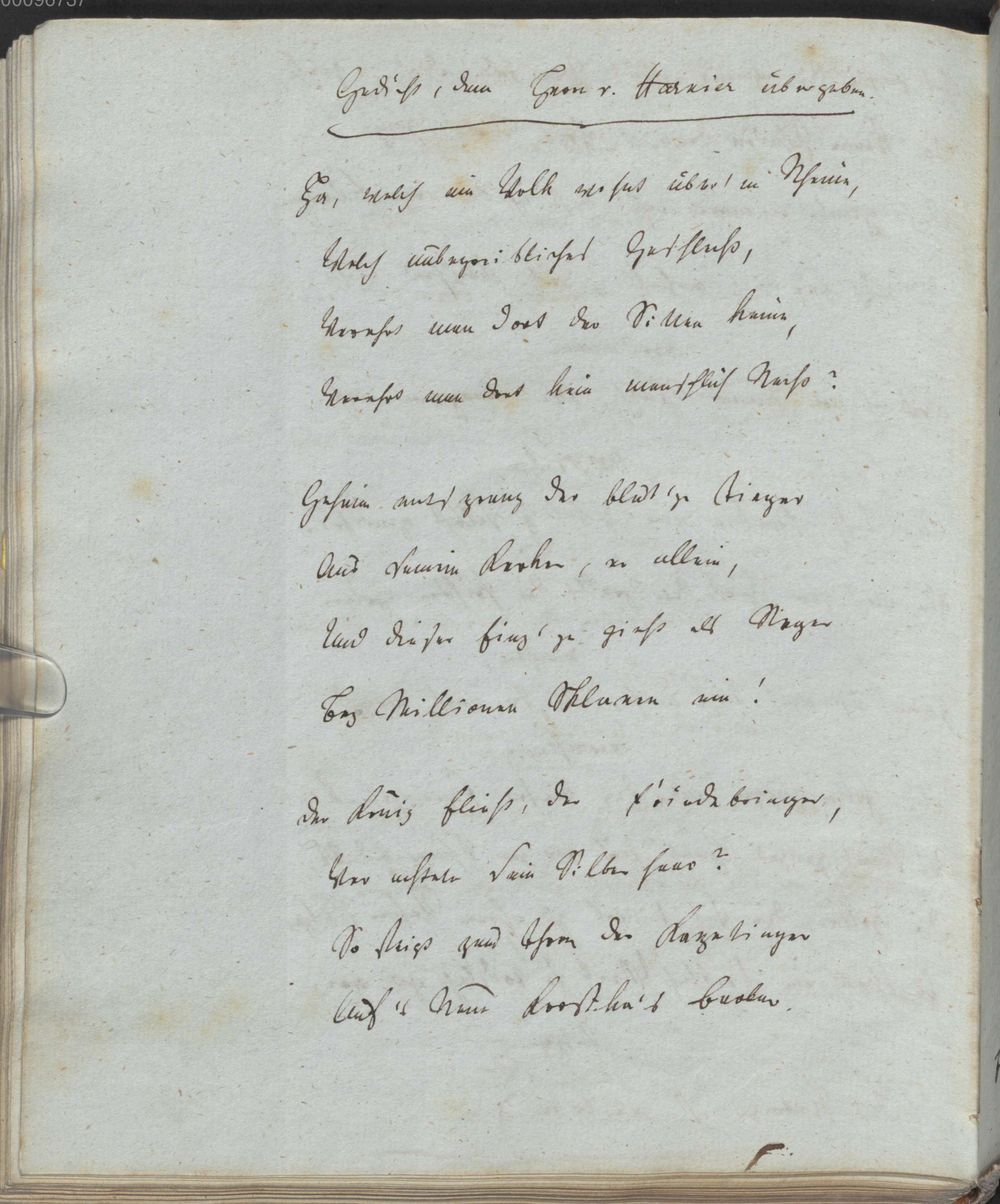 00096737
Gedicht, dem Herrn v. Harnier übergeben.
Ha, welch ein Volk wohnt über'm Rheine,
Welch unbegreifliches Geschlecht,
Verehrt man dort der Sitten keine,
Verehrt man dort kein menschlich Recht?
Geheim entsprang der blut'ge Tieger
Aus seinem Kerker, er allein,
Und dieser Einz'ge zieht als Sieger
Bey Millionen Sklaven ein!
Der König flieht, der Friedebringer,
Wer achtete sein Silberhaar?
So steigt zum Thron der Kapetinger
Auf's Neue Korsika's Barbar.